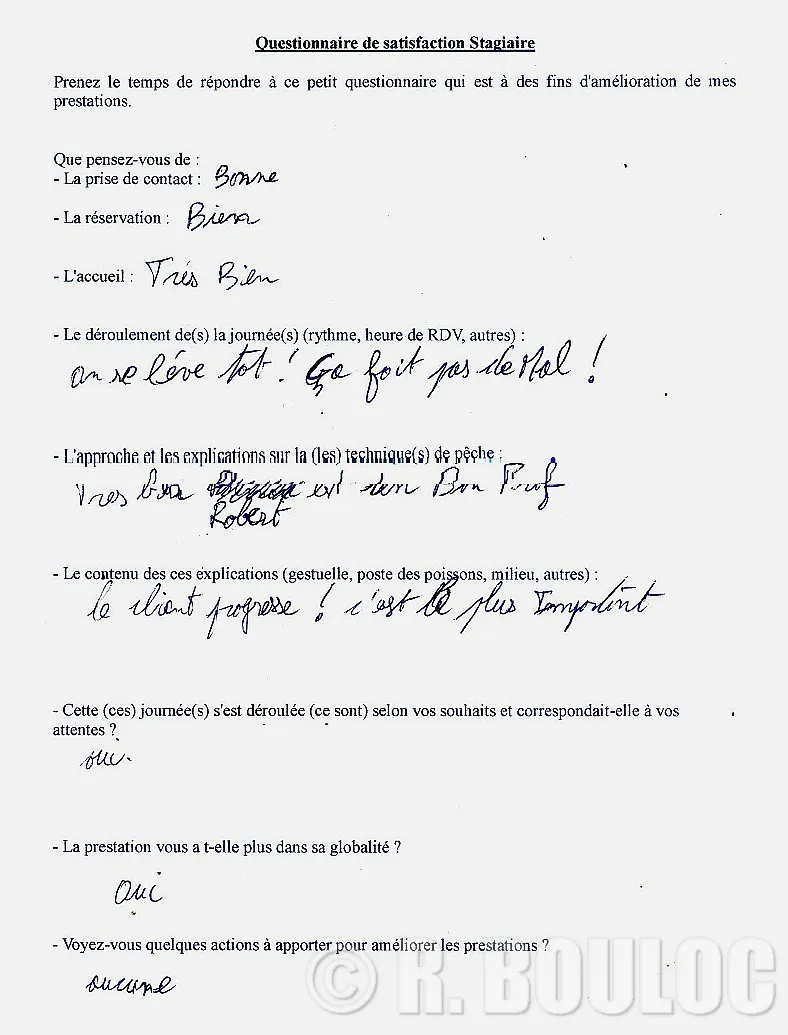 Questionnaire de satisfaction Stagiaire
Prenez le temps de répondre à ce petit questionnaire qui est à des fins d'amélioration de mes
prestations.
Que pensez-vous de :
- La prise de contact : Bonne
- La réservation : Bien
- L'accueil : Très Bien
- Le déroulement de(s) la journée(s) (rythme, heure de RDV, autres) :
on se lève tot ! Ça fait pas de Mal !
- L'approche et les explications sur la (les) technique(s) de pêche :
Tres bon est un Bon Prof
Robert
- Le contenu des ces explications (gestuelle, poste des poissons, milieu, autres) :
le client progresse ! c'est le plus Important
- Cette (ces) journée(s) s'est déroulée (ce sont) selon vos souhaits et correspondait-elle à vos
attentes ?
oui.
- La prestation vous a t-elle plus dans sa globalité ?
Oui
- Voyez-vous quelques actions à apporter pour améliorer les prestations ?
aucune
© R. BOULOC